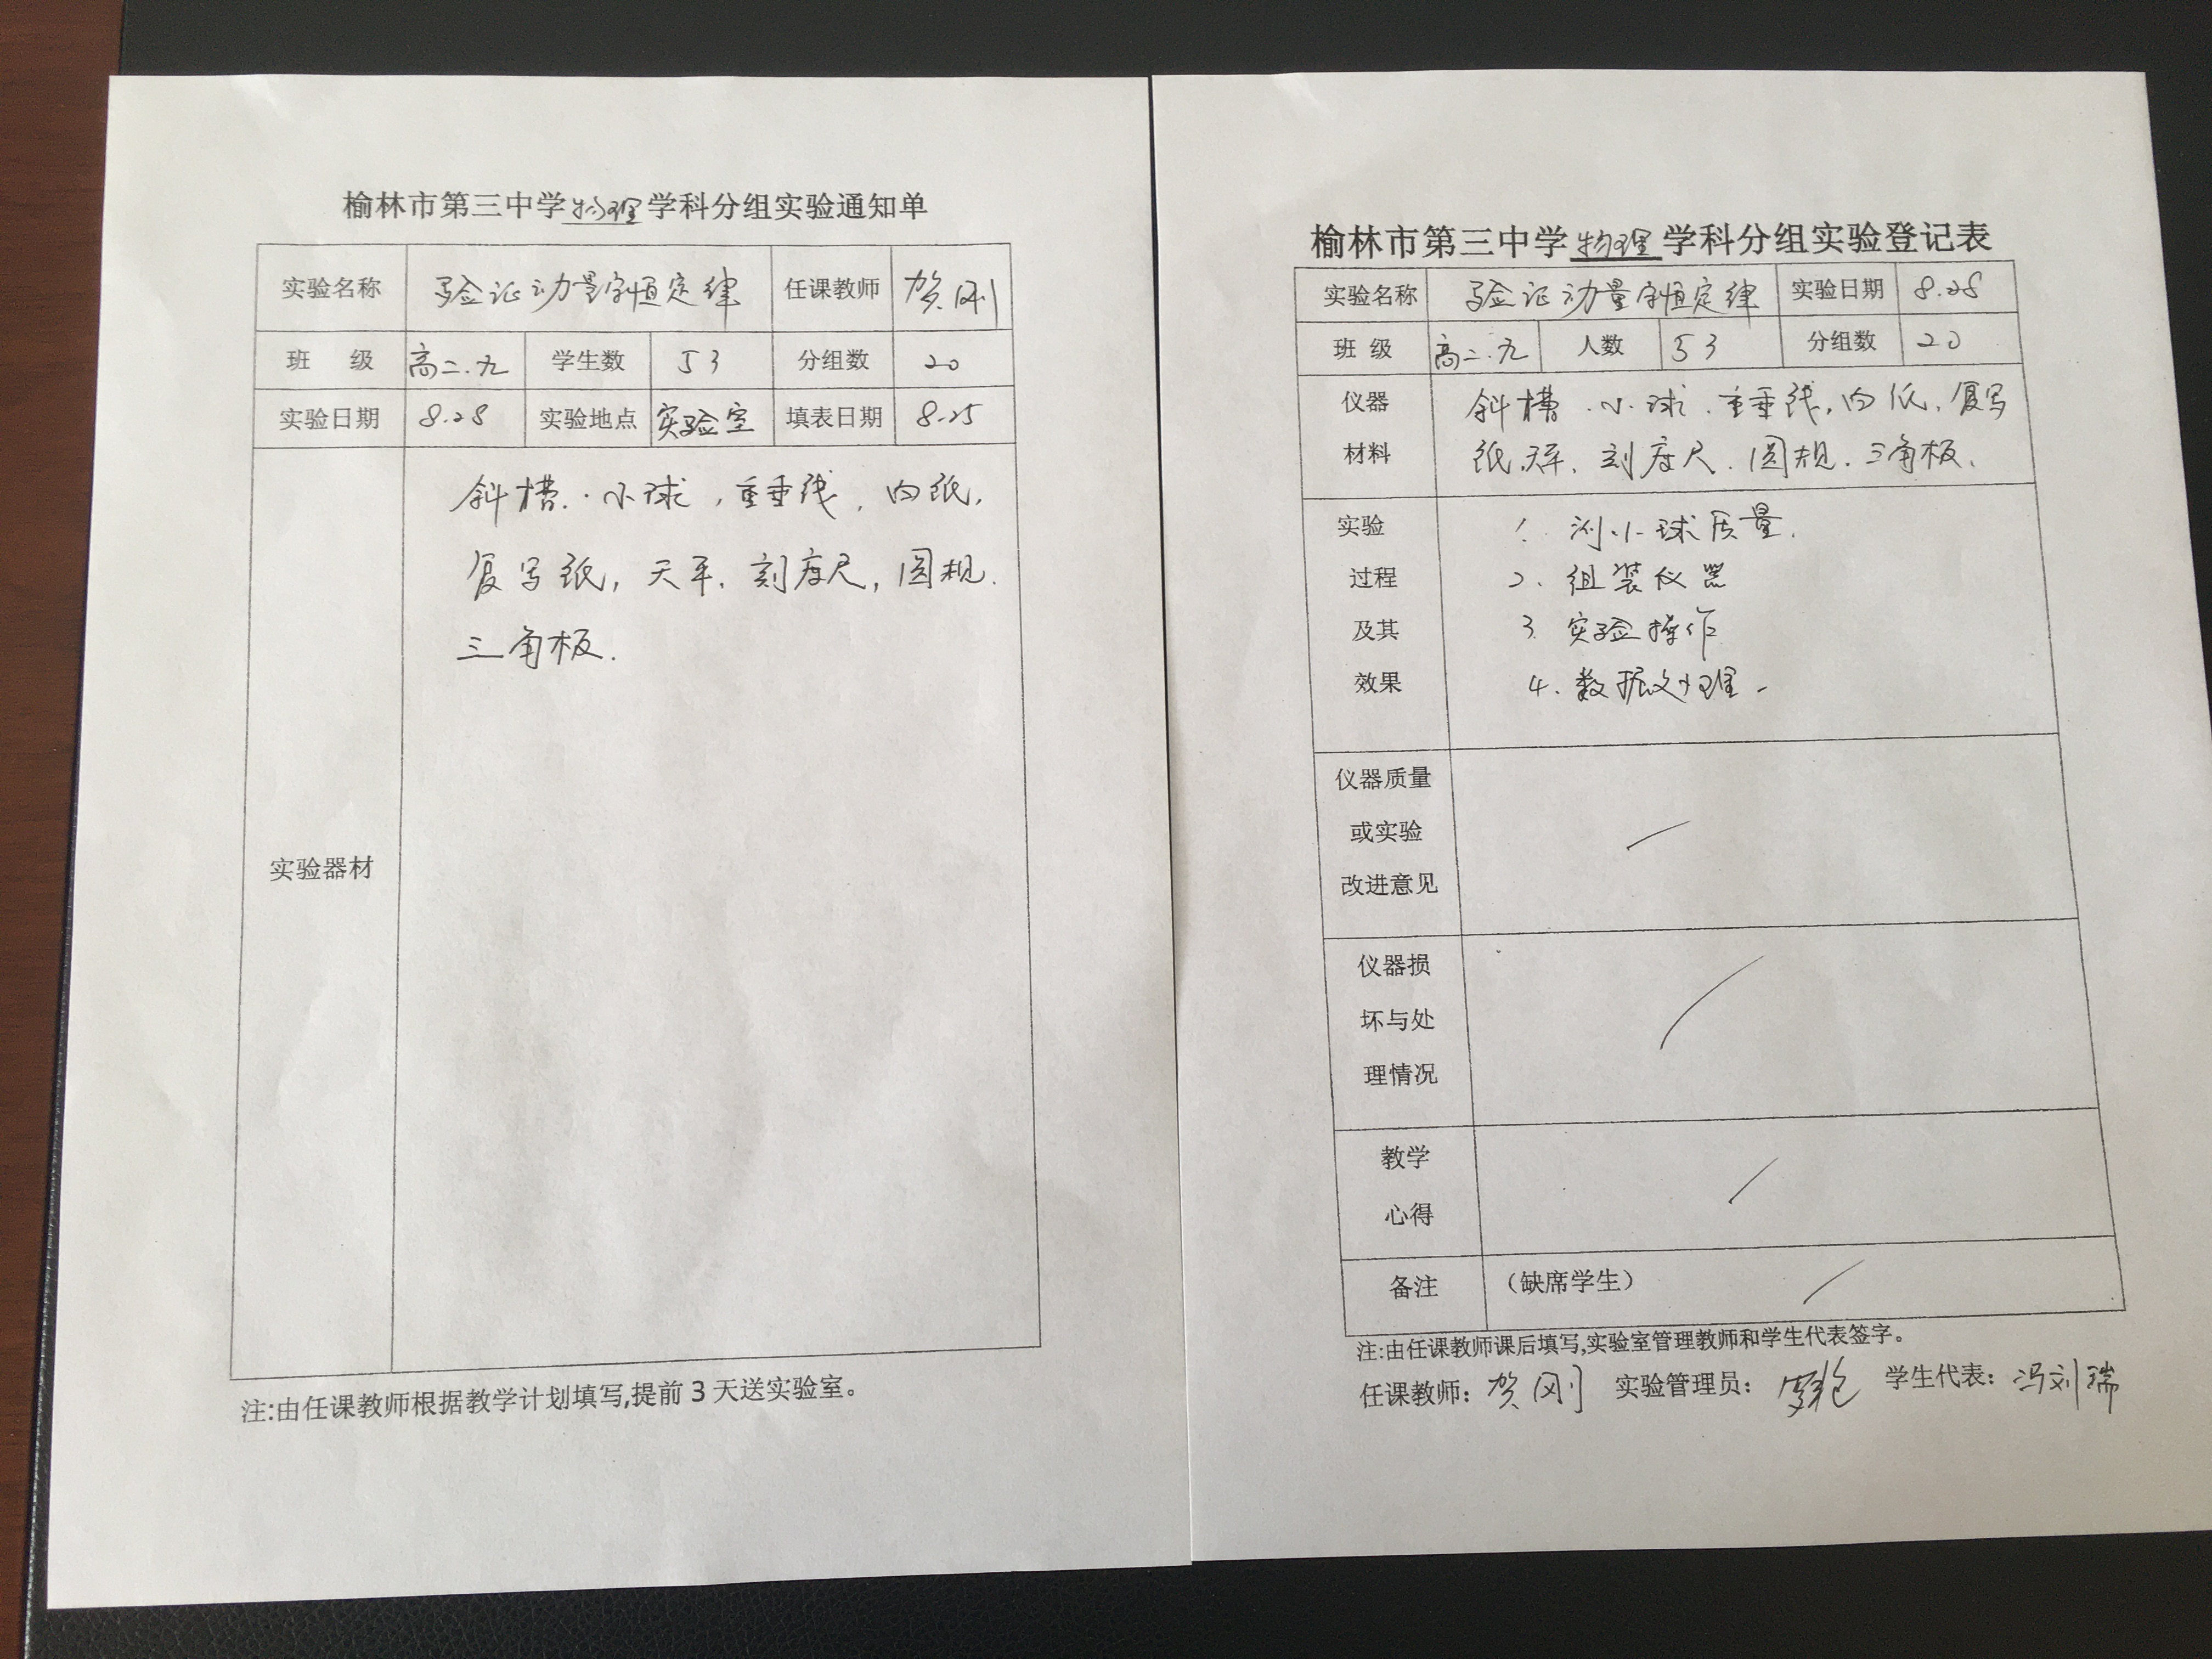 榆林市第三中学物理学科分组实验通知单
实验名称 验证动量守恒定律 任课教师 贺刚
班 级 高二.九 学生数 53 分组数 20
实验日期 8.28 实验地点 实验室 填表日期 8.25
实验器材
斜槽.小球,重垂线,白纸,
复写纸,天平.刻度尺,圆规.
三角板.
注:由任课教师根据教学计划填写,提前3天送实验室。
榆林市第三中学物理学科分组实验登记表
实验名称 验证动量守恒定律 实验日期 8.28
班 级 高二.九 人数 53 分组数 20
仪器 斜槽.小球.重垂线,白纸,复写
材料 纸,天平.刻度尺.圆规.三角板.
实验 1.测小球质量.
过程 2.组装仪器
及其 3.实验操作
效果 4.数据处理.
仪器质量
或实验
改进意见
仪器损
坏与处
理情况
教学
心得
备注 (缺席学生)
注:由任课教师课后填写,实验室管理教师和学生代表签字。
任课教师: 贺刚 实验管理员: 学生代表: 冯刘瑞